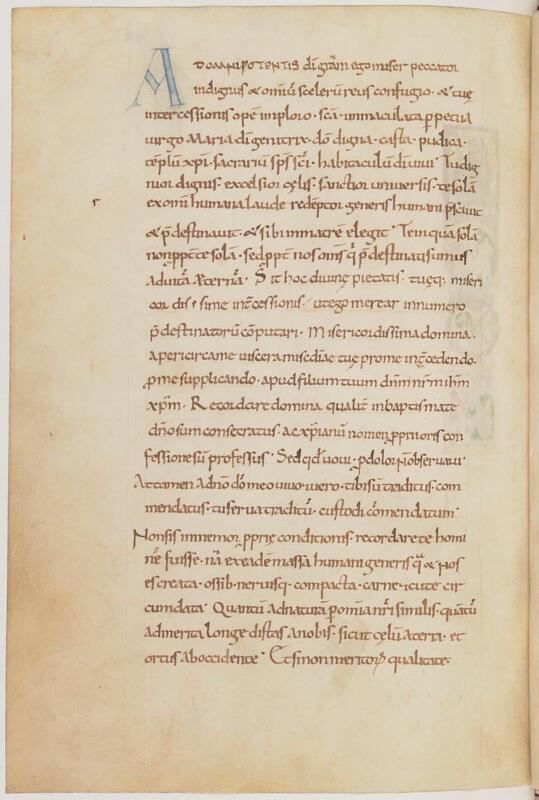 AD OMNIPOTENTIS dī grām ego miser peccator
indignus & omīu scelerū reus confugio · & tuę
intercessionis opē imploro · scā immaculata ꝑpetua
uirgo Maria dī genitrix · dō digna · casta · pudica ·
tēplū xpī · sacrariū spš scī · habitaculū dī uiui · Tu dig
nior dignis · excelsior cęlis · sanctior uniuersis · te solā
ex omī humana laude redēptor generis humani p̄sciuit
& p̄destinauit · & sibi in matrē elegit · Tem quā solā
non ꝓpt te solā · sed ꝓpt nos omīs q̄ p̄destinati sumus
ad uitā æternā · Sit hoc diuinę pietatis · tuęq; miseri
cordissime int̄cessionis · ut ego merear in numero
p̄destinatorū cōputari · Misericordissima domina ·
aperi circa me uiscera misc̄diae tuę pro me int̄cedendo ·
ꝓ me supplicando · apud filium tuum dn̄m nr̄m ih̄m
xp̄m · Recordare domina qualit̄ in baptismate
dn̄o sum consecratus · ac xp̄ianū nomen ꝓprii oris con
fessione sū professus · Sed qđ uoui · ꝓ dolor n̄ obseruaui ·
Attamen ad nō dō meo uiuo & uero · tibi sū traditus · com
mendatus · tu serua traditū · custodi cōmendatum ·
Non sis inmemor ꝓprię conditionis · recordare te homi
nē fuisse · nā ex eadē massa humani generis q̄ & nos
es creata · ossib; neruisq; compacta · carne & cute cir
cumdata · Quantū ad naturā ꝑ omnia nr̄i similis · quātū
ad merita longe distas a nobis · sicut cęlū a terra · et
ortus ab occidente · Et si non meritoꝝ qualitate ·